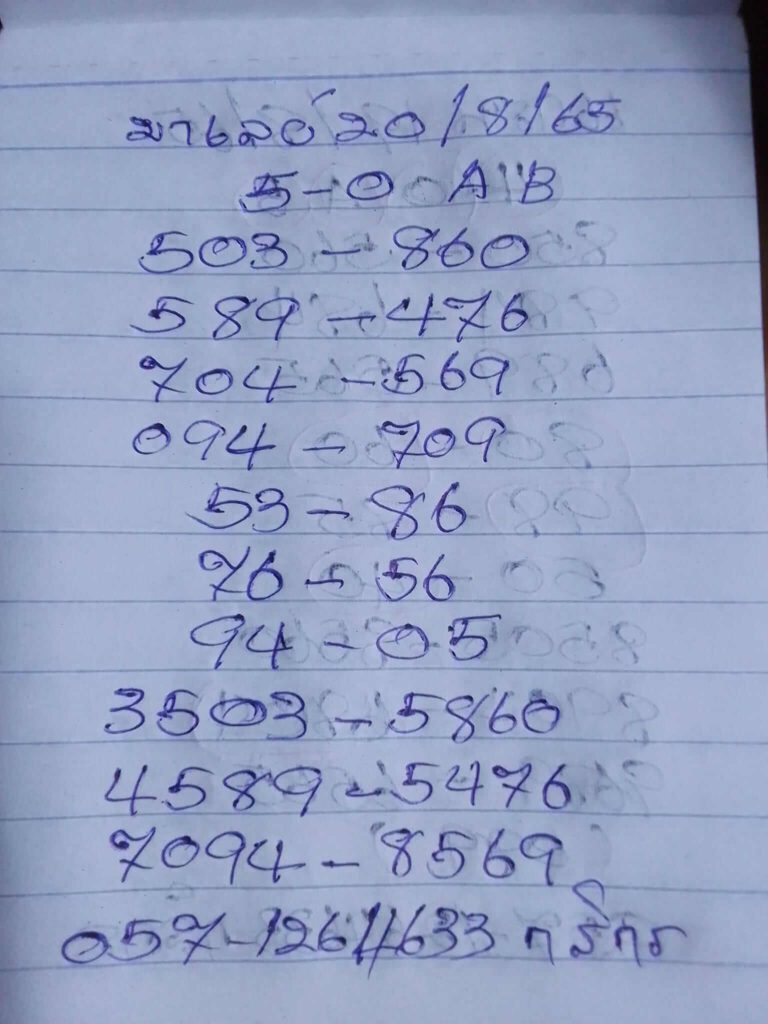 มาเลย์ 20/8/65
5-0 AB
503-860
589-476
704-569
094-709
53-86
76-56
94-05
3503-5860
4589-5476
7094-8569
057-1264633